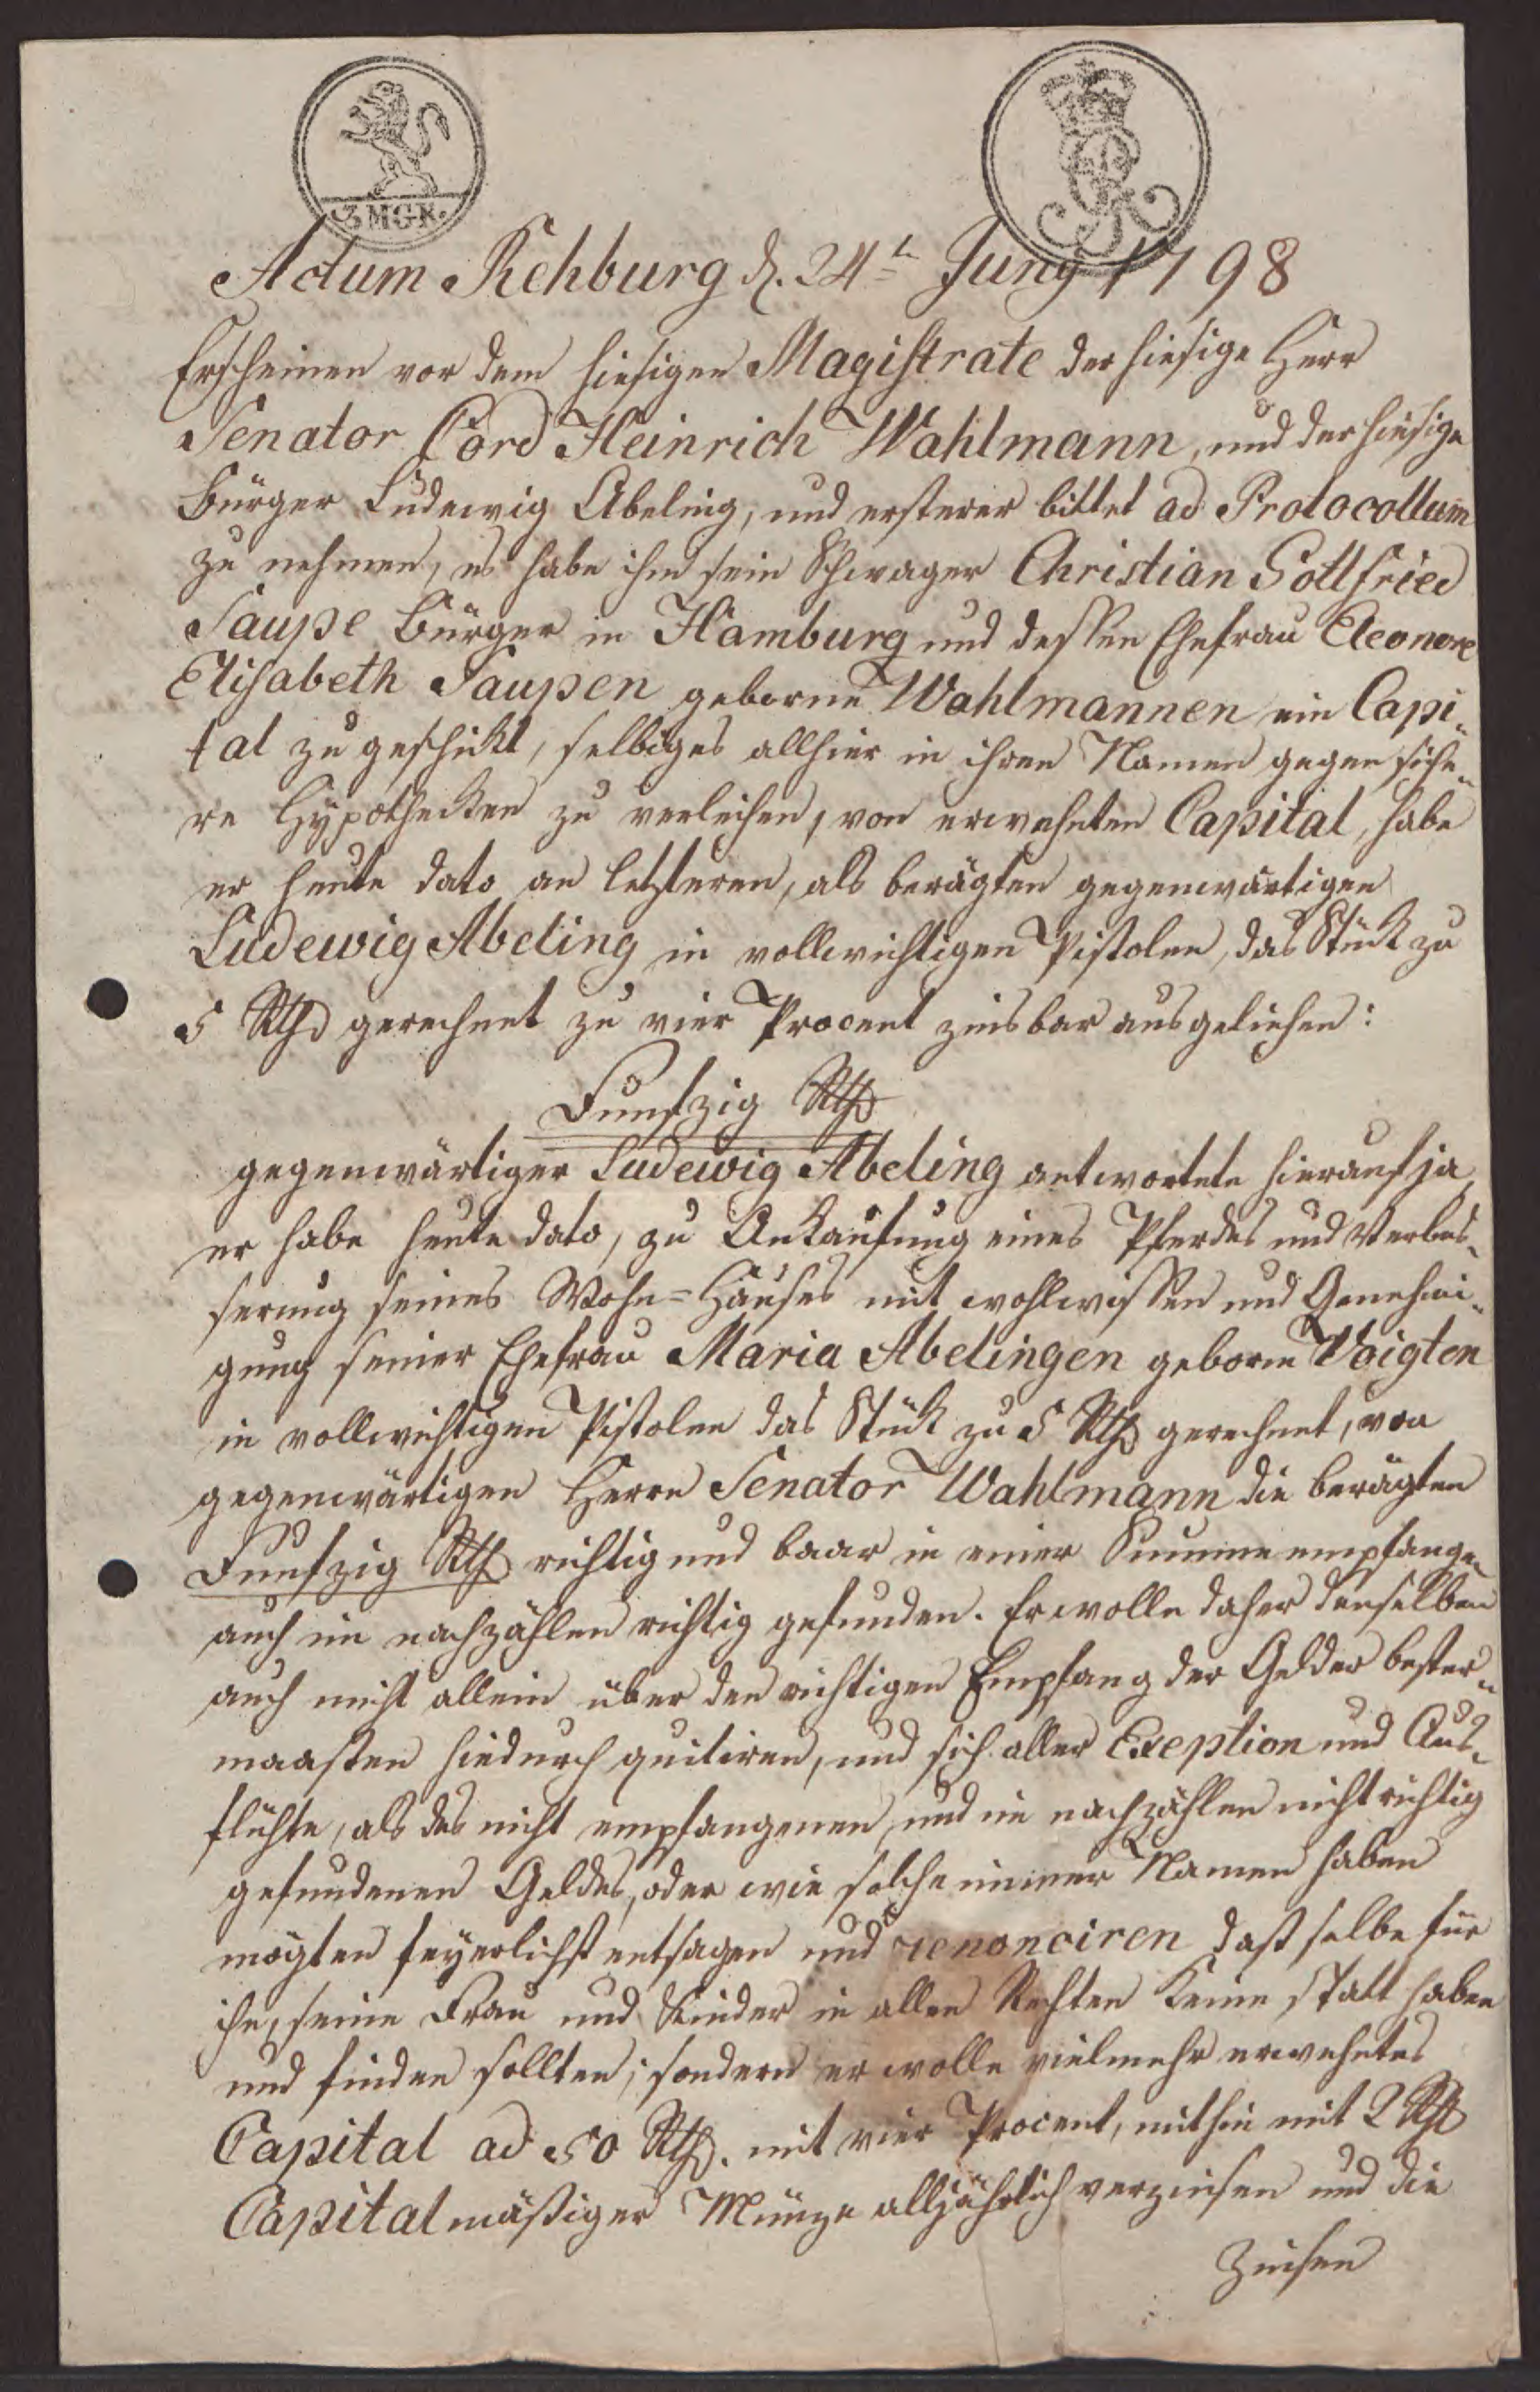 3 MGR.
GR
Actum Rehburg d. 24ten Juny 1798
Erscheinen vor dem hiesigen Magistrate der hiesige Herr
Senator Cord Heinrich Wahlmann, und der hiesige
Bürger Ludewig Abeling, und ersterer bittet ad Protocollum
zu nehmen, es habe ihm sein Schwager Christian Gottfried
Saupe Bürger in Hamburg und dessen Ehefrau Eleonore
Elisabeth Saupen geborne Wahlmannen ein Capi„
tal zu geschickt, selbiges allhier in ihren Namen gegen siche„
re Hypothecken zu verleihen, von erwehnten Capital, habe
er heute dato an letzteren, als berägten gegenwärtigen
Ludewig Abeling in vollwichtigen Pistolen, das Stück zu
5 Rthl gerechnet zu vier Procent zinsbar ausgeliehen:
Funfzig Rthl
gegenwärtiger Ludewig Abeling antwortete hierauf ja,
er habe heute dato, zu Ankaufung eines Pferdes und Verbes„
serung seines Wohn=Hauses mit wohlwissen und Genehmi„
gung seiner Ehefrau Maria Abelingen geborne Voigten
in vollwichtigen Pistolen das Stück zu 5 Rthl gerechnet, von
gegenwärtigen Herrn Senator Wahlmann die berägten
Funfzig Rthl richtig und baar in einer Summe empfangen
auch im nachzählen richtig gefunden. Er wolle daher denselben
auch nicht allein über den richtigen Empfang der Gelder bester„
maassen hiedurch quitiren, und sich aller Exeption und Aus„
flüchte, als des nicht empfangenen, und im nachzählen nicht richtig
gefundenen Geldes, oder wie solche immer Namen haben
mögten feyerlichst entsagen und renonciren dass selbe für
ihn, seine Frau und Kinder in allen Rechten keine statt haben
und finden sollten; sondern er wolle vielmehr erwehntes
Capital ad 50 Rthl. mit vier Procent, mithin mit 2 Rthl
Capitalmässiger Münze alljährlich verzinsen und die
Zinsen